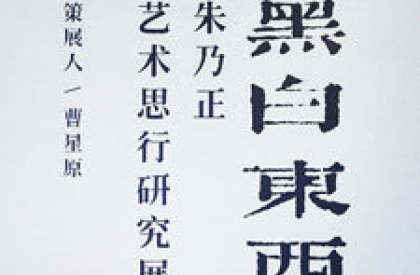 黑白東西
朱乃正
艺术思行研究展
策展人/曹星原